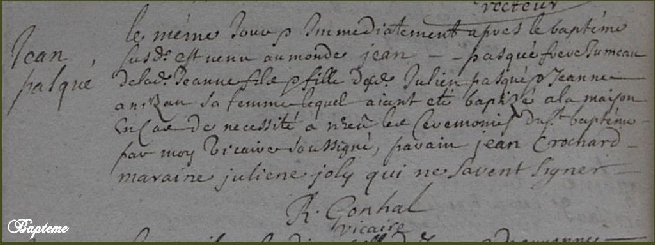 recteur
le même Jour & Immediatement apres le baptême
susd. est venu au monde jean - - pasqué frere Jumeau
de lad. Jeanne fils & fille de Julien pasqué & Jeanne
sa femme lequel aiant eté baptisé a la maison
En Cas de necessité a receu les Ceremonies du st. baptême
par moy Vicaire Soussigné, parain jean Crochard
maraine juliene joly qui ne savent Signer
R. Gonhal
vicaire
Jean
pasqué
Bapteme